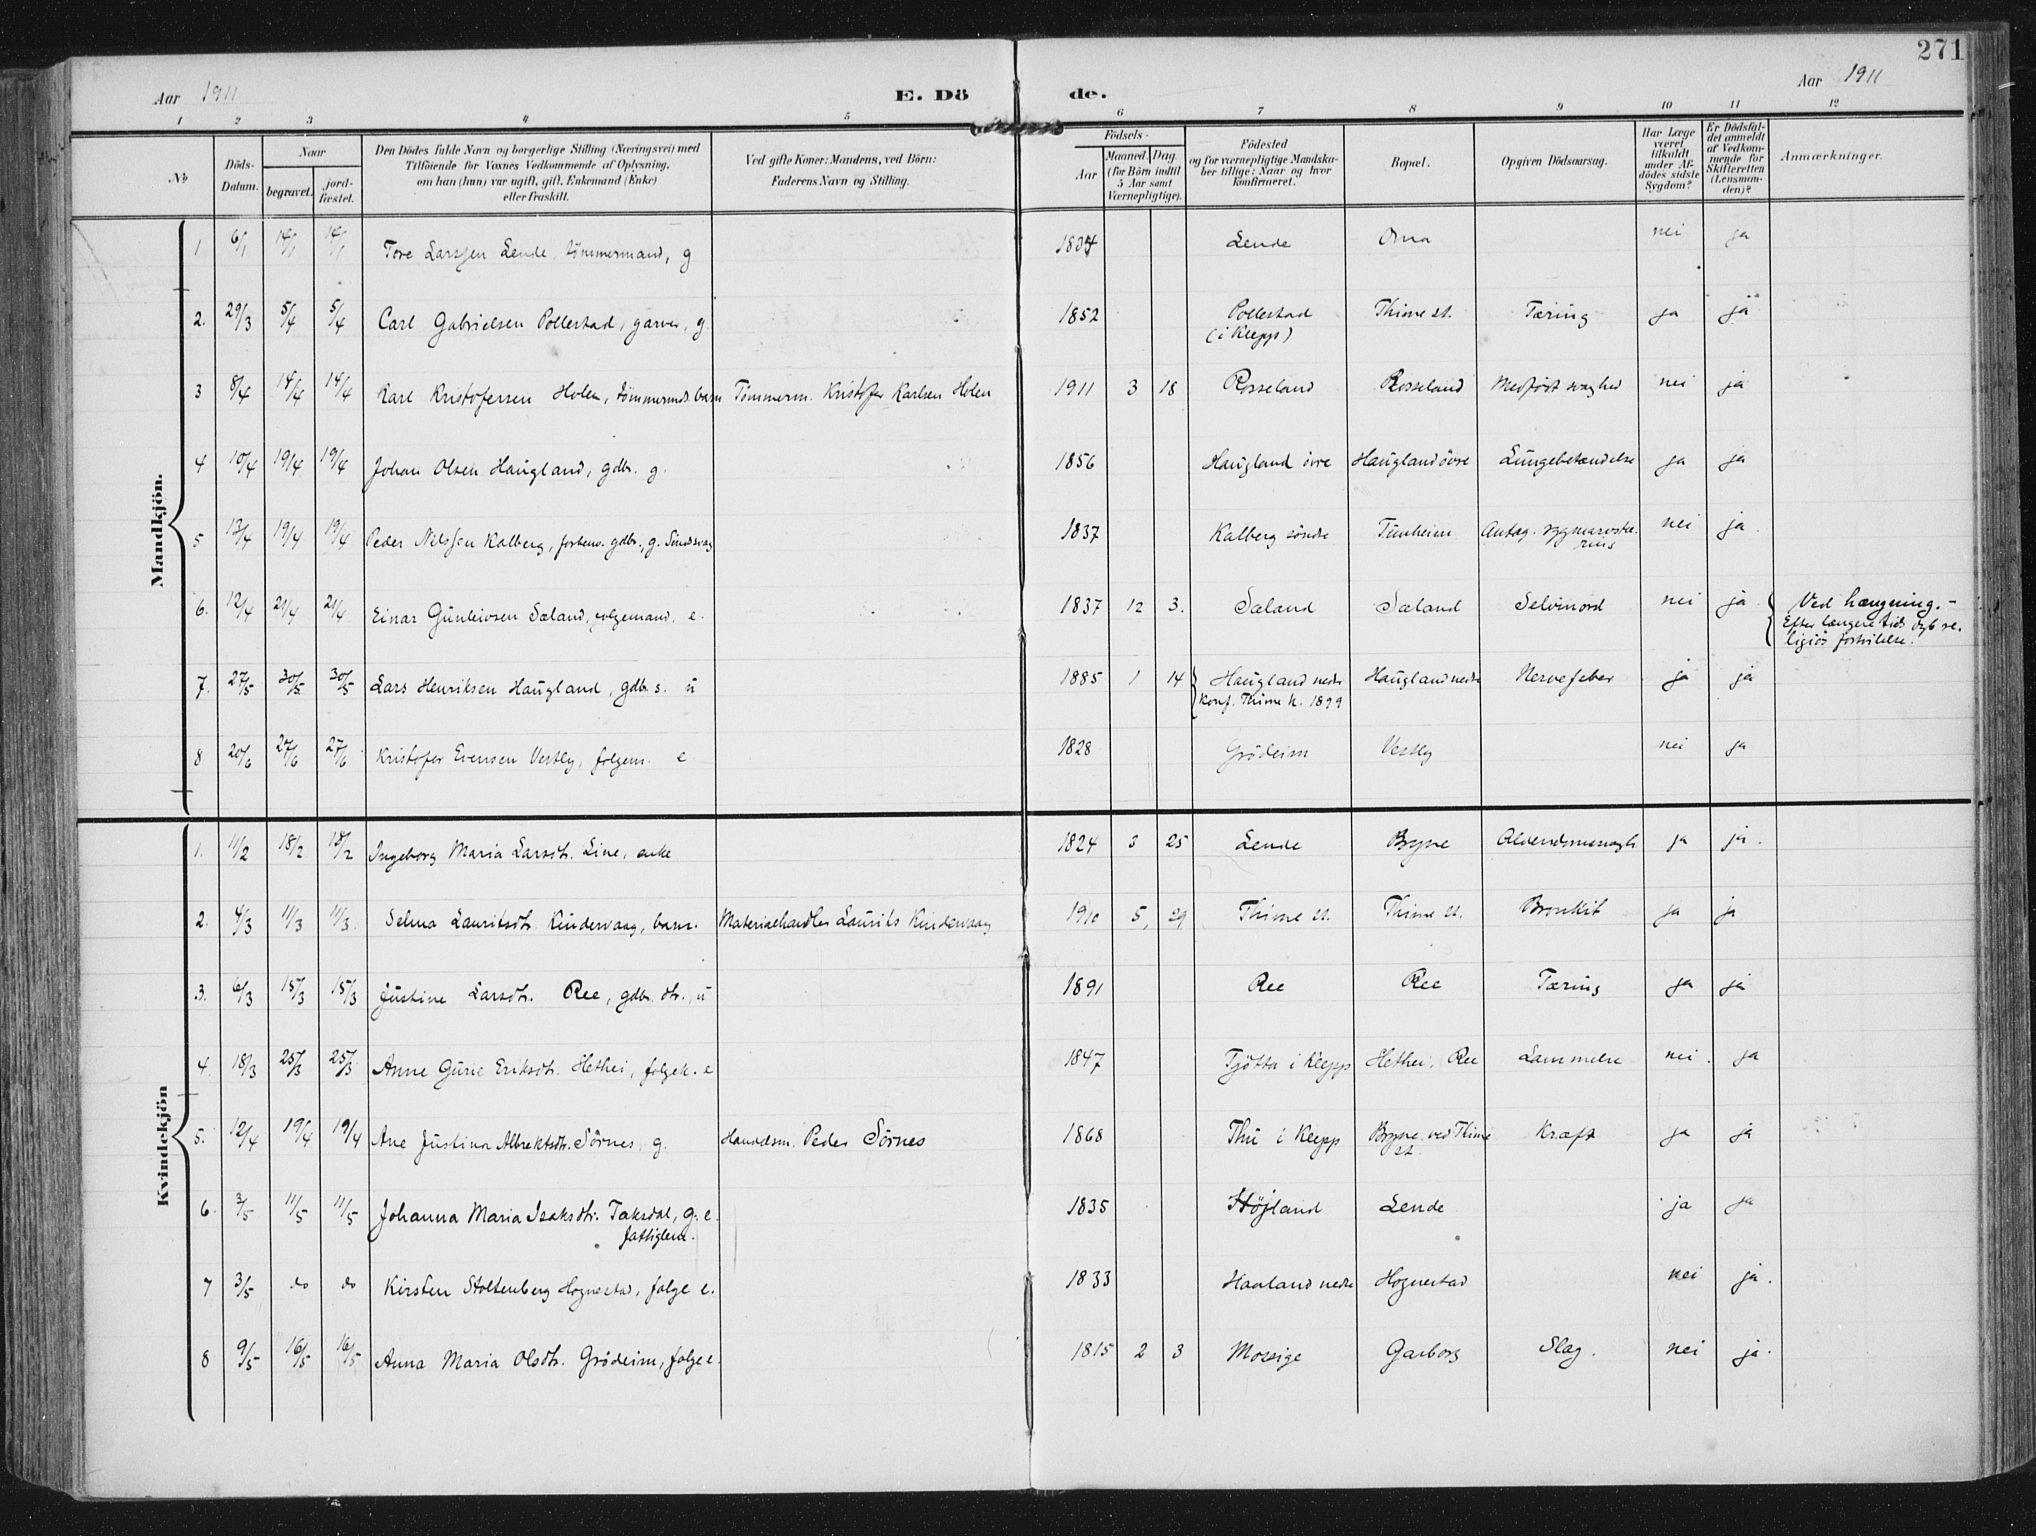 271
Aar 1911
E. Dö de.
Aar 1911
1 2 3 4 5 6 7 8 9 10 11 12
No
Döds-
Datum.
Naar
begravet.
jord-
fæstet.
Den Dödes fulde Navn og borgerlige Stilling (Næringsvei) med
Tilföiende for Voxnes Vedkommende af Oplysning,
om han (hun) var ugift, gift, Enkemand (Enke)
eller fraskilt.
Ved gifte Koner: Mandens, ved Börn:
Faderens Navn og Stilling.
Födsels-
Aar
Maaned. Dag.
(for Börn indtil
5 Aar samt
Værnepligtige).
Födested
og for værnepligtige Mandska-
ber tillige: Naar og hvor
konfirmeret.
Bopæl.
Opgiven Dödsaarsag.
Har Læge
været
tilkaldt
under Af-
dödes sidste
Sygdom?
Er Dödsfal-
det anmeldt
af Vedkom-
mende for
Skifteretten
(Lensman-
den)?
Anmærkninger.
Mandkjön.
1 6/1 14/1 14/1 Tore Larssen Lende, tömmermand, g 1834 Lende Oma nei ja
2. 29/3 5/4 5/4 Carl Gabrielsen Pollestad, garver, g. 1852 Pollestad Thime st. Tæring ja ja
(i Klepp)
3 8/4 14/4 14/4 Karl Kristofersen Holen, tömmermds. barn Tömmerm. Kristofer Karlsen Holen 1911 3 18 Rosseland Rosseland Medfödt svaghed nei ja
4 10/4 19/4 19/4 Johan Olsen Haugland, gdbr. g. 1856 Haugland övre Haugland övre Lungebetændelse ja ja
5 13/4 19/4 19/4 Peder Nilssen Kalberg, forhenv. gdbr., g. Sindssvag 1837 Kalberg söndre Tunheim Antag. nei ja
6. 12/4 21/4 21/4 Einar Gunleivsen Sæland, folgemand, e. 1837 12 3. Sæland Sæland Selvmord nei ja Ved hængning. -
Efter længere tids dyb re-
ligiös fortvilelse.
7. 27/5 30/5 30/5 Lars Henriksen Haugland, gdbr. s. u 1885 1 14 Haugland nedre Haugland nedre Nervefeber ja ja
Konf. Thime k. 1899
8 20/6 27/6 27/6 Kristofer Evensen Vestly, folgem. e. 1828 Grödeim Vestly nei ja
Kvindekjön
1. 11/2 18/2 18/2 Ingeborg Maria Larsdtr. Line, enke 1824 3 25 Lende Bryne ja ja.
2. 4/3 11/3 11/3. Selma Lauritsdtr. Kindervaag, barn. Materialhandler Laurits Kindervaag 1910 5, 29 Thime st. Thime st. Bronkit ja ja
3. 6/3 15/3 15/3 Justine Larsdtr. Ree, gdbr. dtr., u 1891 Ree Ree Tæring ja ja
4. 18/3 25/3 25/3 Anne Gurie Eriksdtr. Hethei, folgek. e 1847 Tjötta i Klepp Hethei, Ree Lammelse nei. ja
5. 12/4 19/4 19/4 Ane Justina Albrektsdtr. Sörnes, g. Handelsm. Peder Sörnes 1868 Thu i Klepp Bryne ved Thime Kræft ja ja
st.
6. 3/5 11/5 11/5 Johanna Maria Isaksdtr. Taksdal, g. e. 1835 Höjland Lende ja ja
fattiglem.
7 3/5 do do Kirsten Stoltenberg Hognestad, folge e. 1833 Haaland nedre Hognestad nei ja.
8 9/5 16/5 16/5 Anna Maria Olsdtr. Grödeim, folge e. 1815 2 3 Mossige Garborg Slag. nei ja.